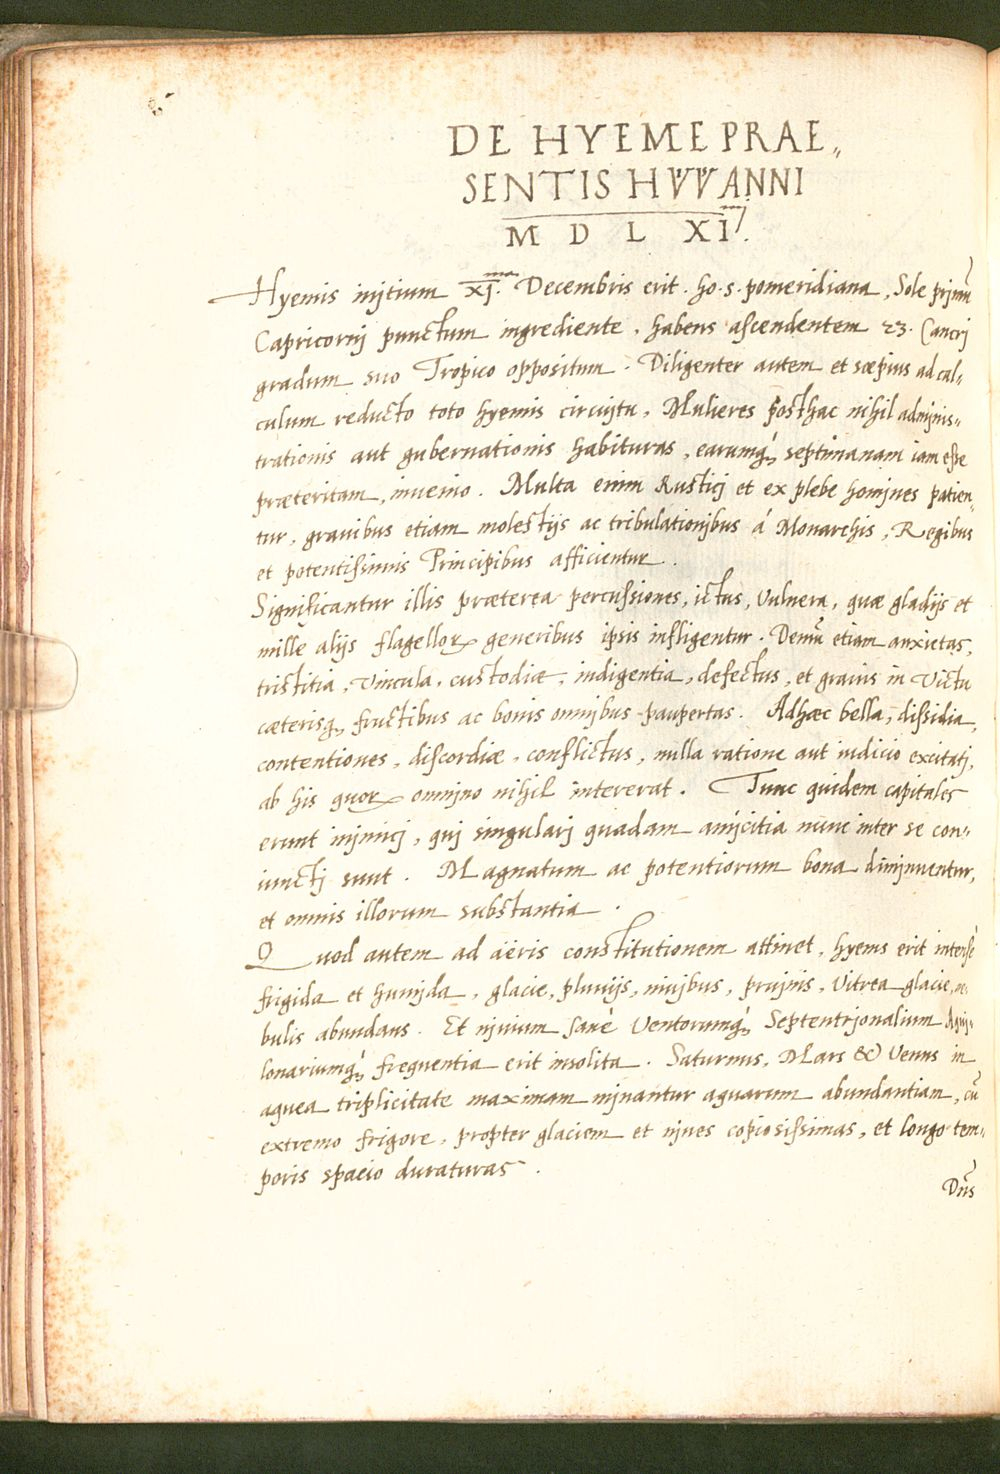 DE HYEME PRAE„
SENTIS HVVANNI
M D L XI
Hyemis initium XI.ma Decembris erit . ho . 5 . pomeridiana , Sole primũ
Capricornij punctum ingrediente , habens ascendentem 23 . Cancrj
gradum suo Tropico oppositum . Diligenter autem et sæpius ad cal„
culum reducto toto hyemis circuitu , Mulieres posthac nihil adminis„
trationis aut gubernationis habituras , earumq́ septimanam iam esse
præteritam , invenio . Multa enim Rusticj et ex plebe homines patien„
tur , gravibus etiam molestijs ac tribulationibus á Monarchis , Regibus
et potentissimis Principibus afficientur .
Significantur illis præterea percussiones , ictus , Vulnera , quæ gladijs et
mille alijs flagelloꝝ generibus ipsis infligentur . Demũ etiam anxietas ,
tristitia , Vincula , custodiæ , indigentia , defectus , et gravis in Victu
cæterisq́ fructibus ac bonis omnibus paupertas . Adhæc bella , dissidia ,
contentiones , discordiæ , conflictus , nulla ratione aut iudicio excitatj ,
ab his quoꝝ omnino nihil intererat . Tunc quidem capitales
erunt inimicj , quj singularj quadam amicitia nunc inter se con„
iunctj sunt . Magnatum ac potentiorum bona diminuentur ,
et omnis illorum substantia .
Quod autem ad aëris constitutionem attinet , hyems erit intensè
frigida et humida , glacie , pluvijs , nivibus , pruinis , Vitrea glacie , ne„
bulis abundans . Et nivium sanè Ventorumq́ Septentrionalium Aqui„
lonariumq́ frequentia erit insolita . Saturnus , Mars & Venus in
aquea triplicitate maximam minantur aquarum abundantiam , cũ
extremo frigore , propter glaciem et nives copiosissimas , et longo tem„
poris spacio duraturas .
Dñs